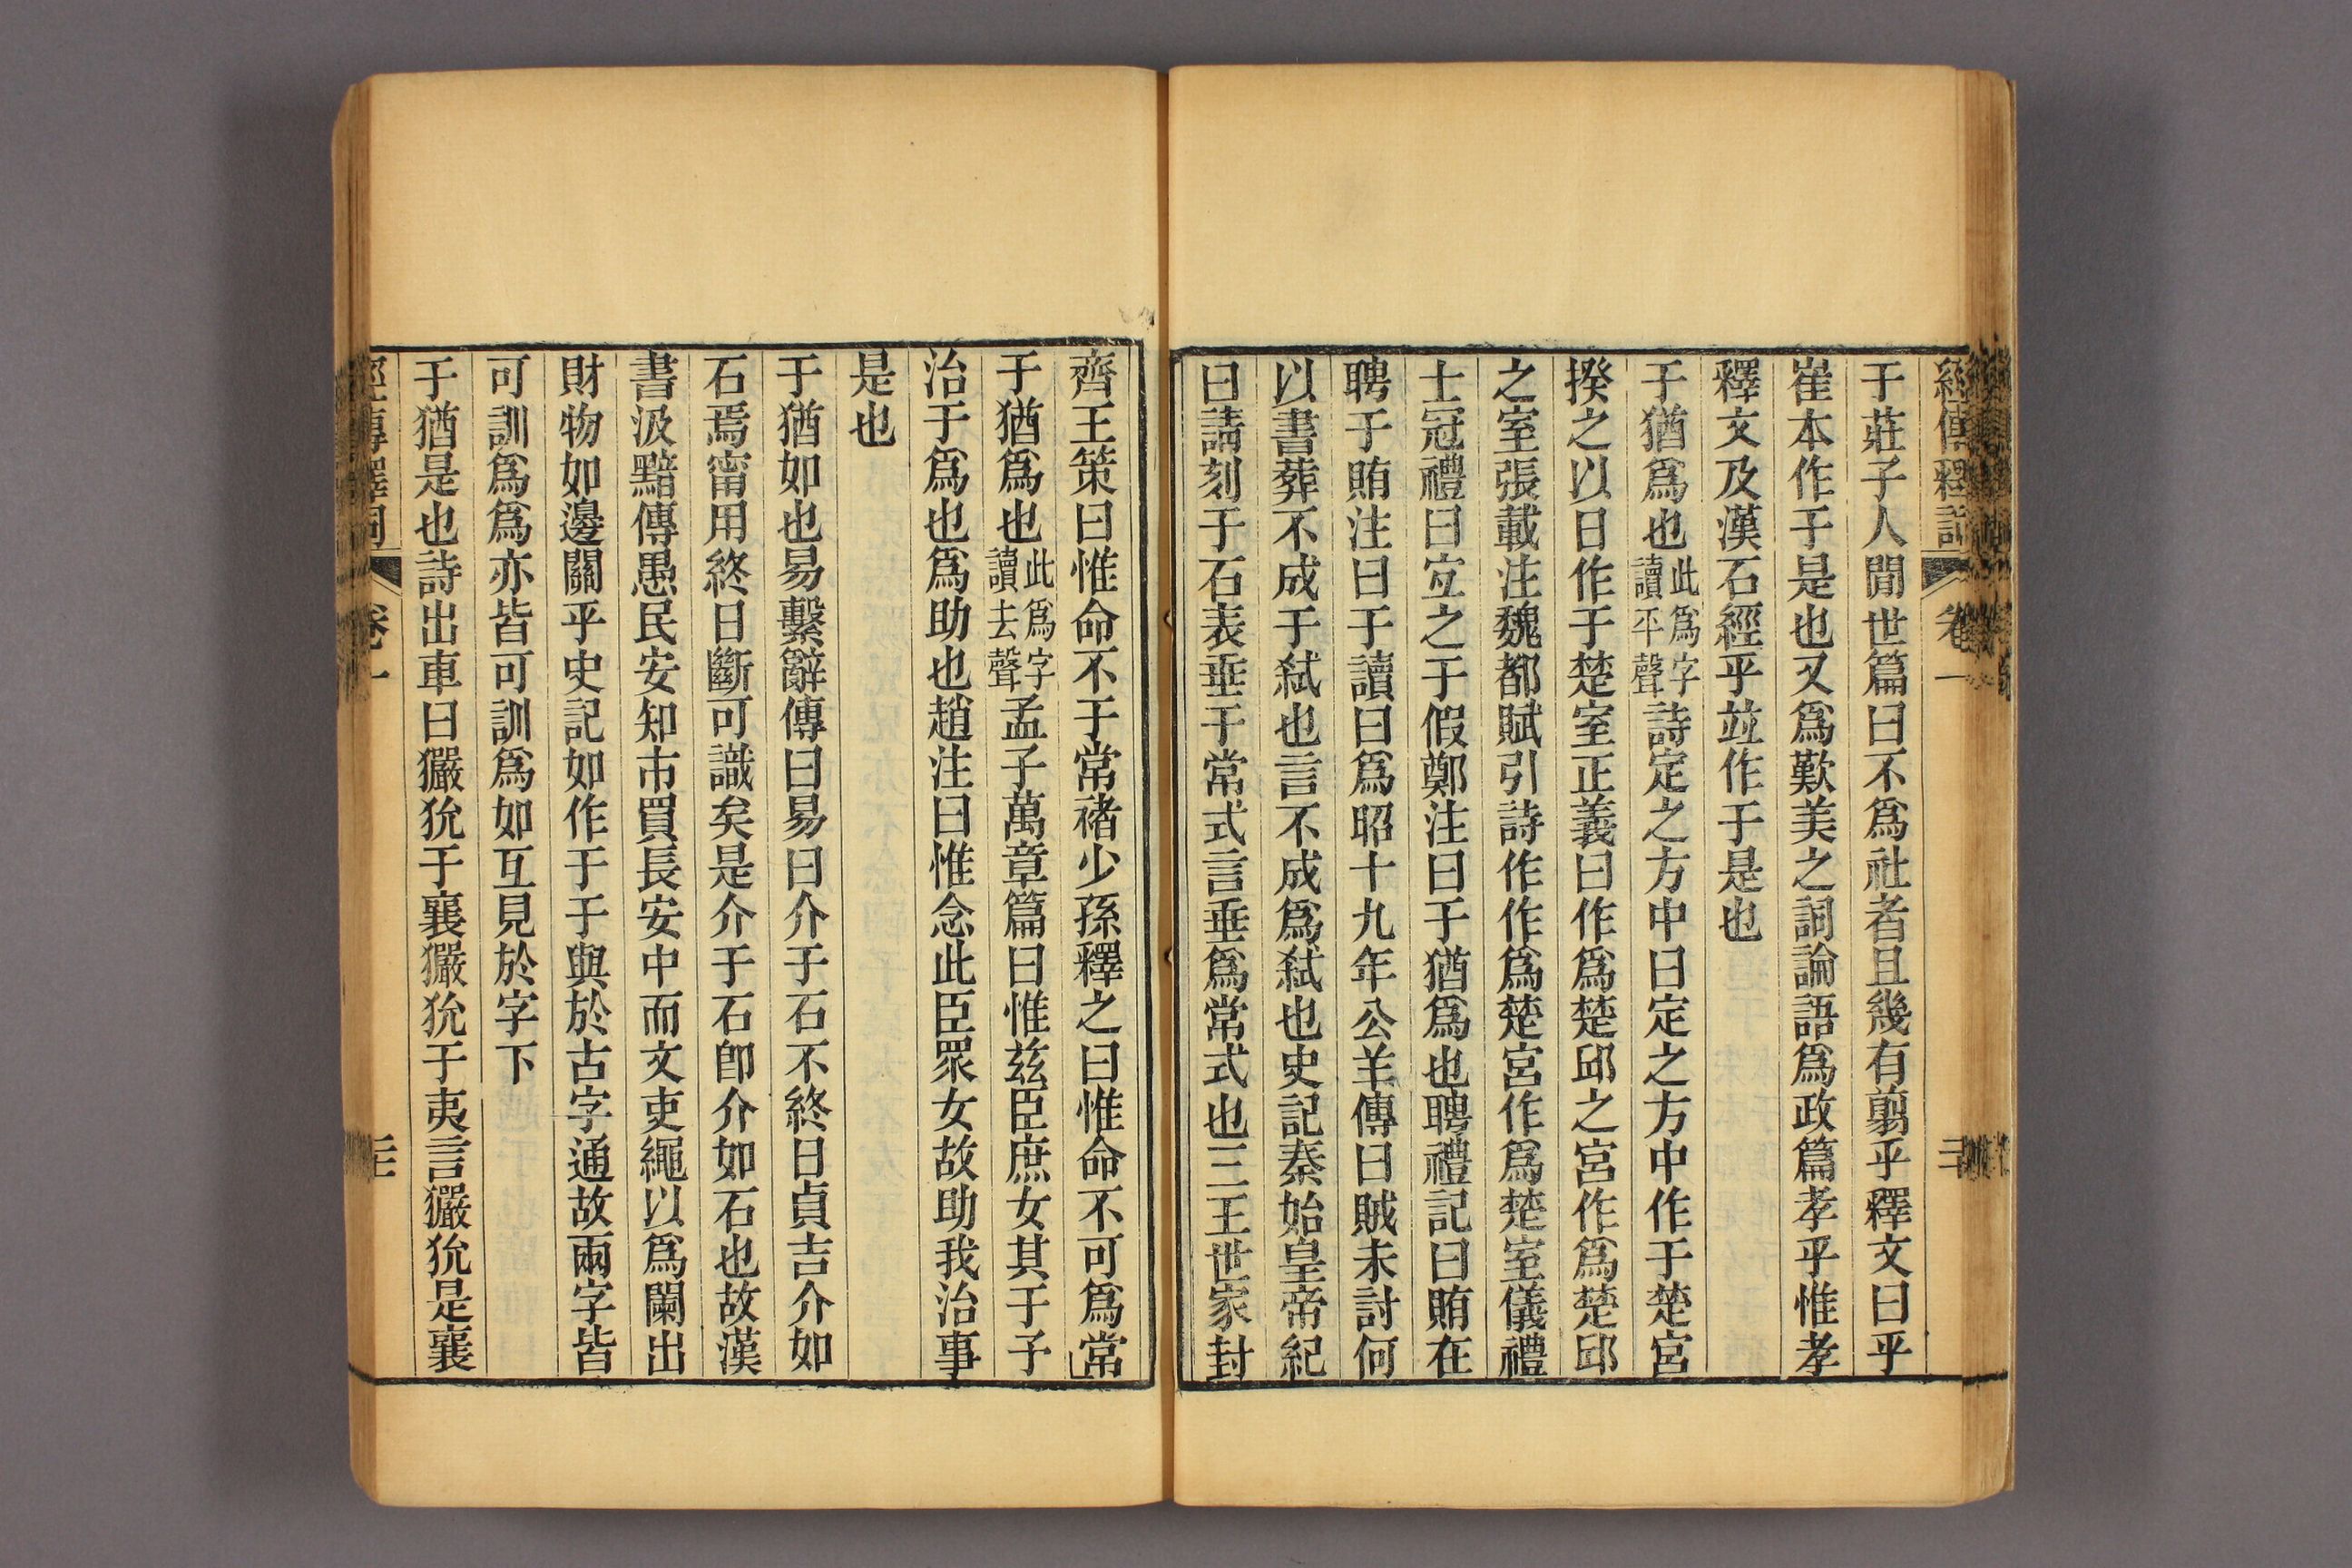 經傳釋詞 卷一
于莊子人閒世篇曰不爲社者且幾有翦乎釋文曰乎
崔本作于是也又爲歎美之詞論語爲政篇孝乎惟孝
釋文及漢石經乎竝作于是也
于猶爲也此爲字讀平聲詩定之方中曰定之方中作于楚宮
揆之以日作于楚室正義曰作爲楚邱之宮作爲楚邱
之室張載注魏都賦引詩作作爲楚宮作爲楚室儀禮
士冠禮曰宐之于假鄭注曰于猶爲也聘禮記曰賄在
聘于賄注曰于讀曰爲昭十九年公羊傳曰賊未討何
以書葬不成于弑也言不成爲弑也史記秦始皇帝紀
曰請刻于石表垂于常式言垂爲常式也三王世家封
齊王策曰惟命不于常褚少孫釋之曰惟命不可爲常
于猶爲也此爲字讀去聲孟子萬章篇曰惟兹臣庶女其于予
治于爲也爲助也趙注曰惟念此臣眾女故助我治事
是也
于猶如也易繫辭傳曰易曰介于石不終日貞吉介如
石焉甯用終日斷可識矣是介于石卽介如石也故漢
書汲黯傳愚民安知市買長安中而文吏繩以爲闌出
財物如邊關乎史記如作于于與於古字通故兩字皆
可訓爲爲亦皆可訓爲如互見於字下
于猶是也詩出車曰玁狁于襄玁狁于夷言玁狁是襄
經傳釋詞 卷一